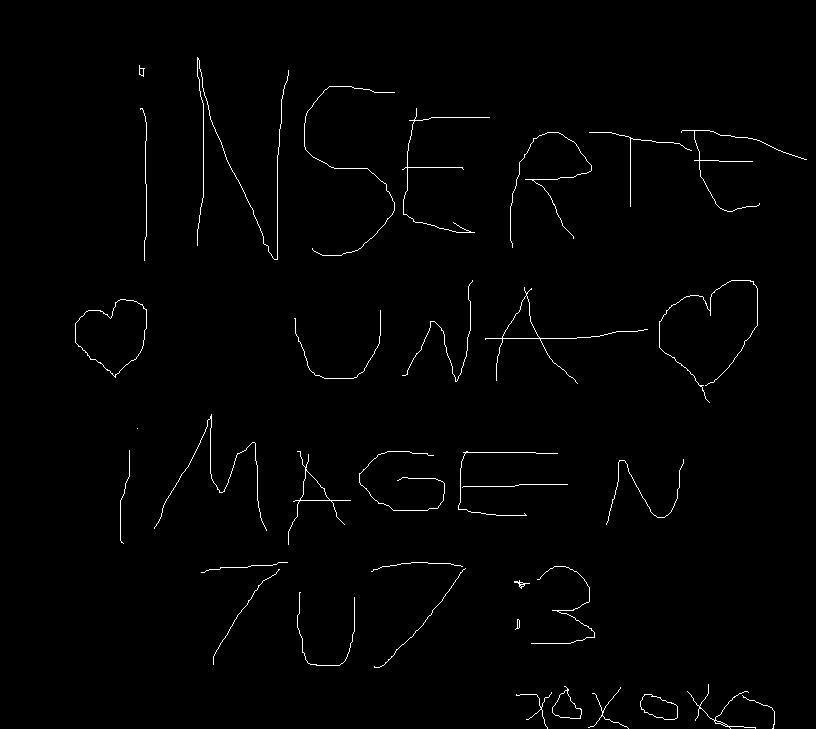 iNSERTE
UNA
iMAGEN
7U7 :3
XOXOXO